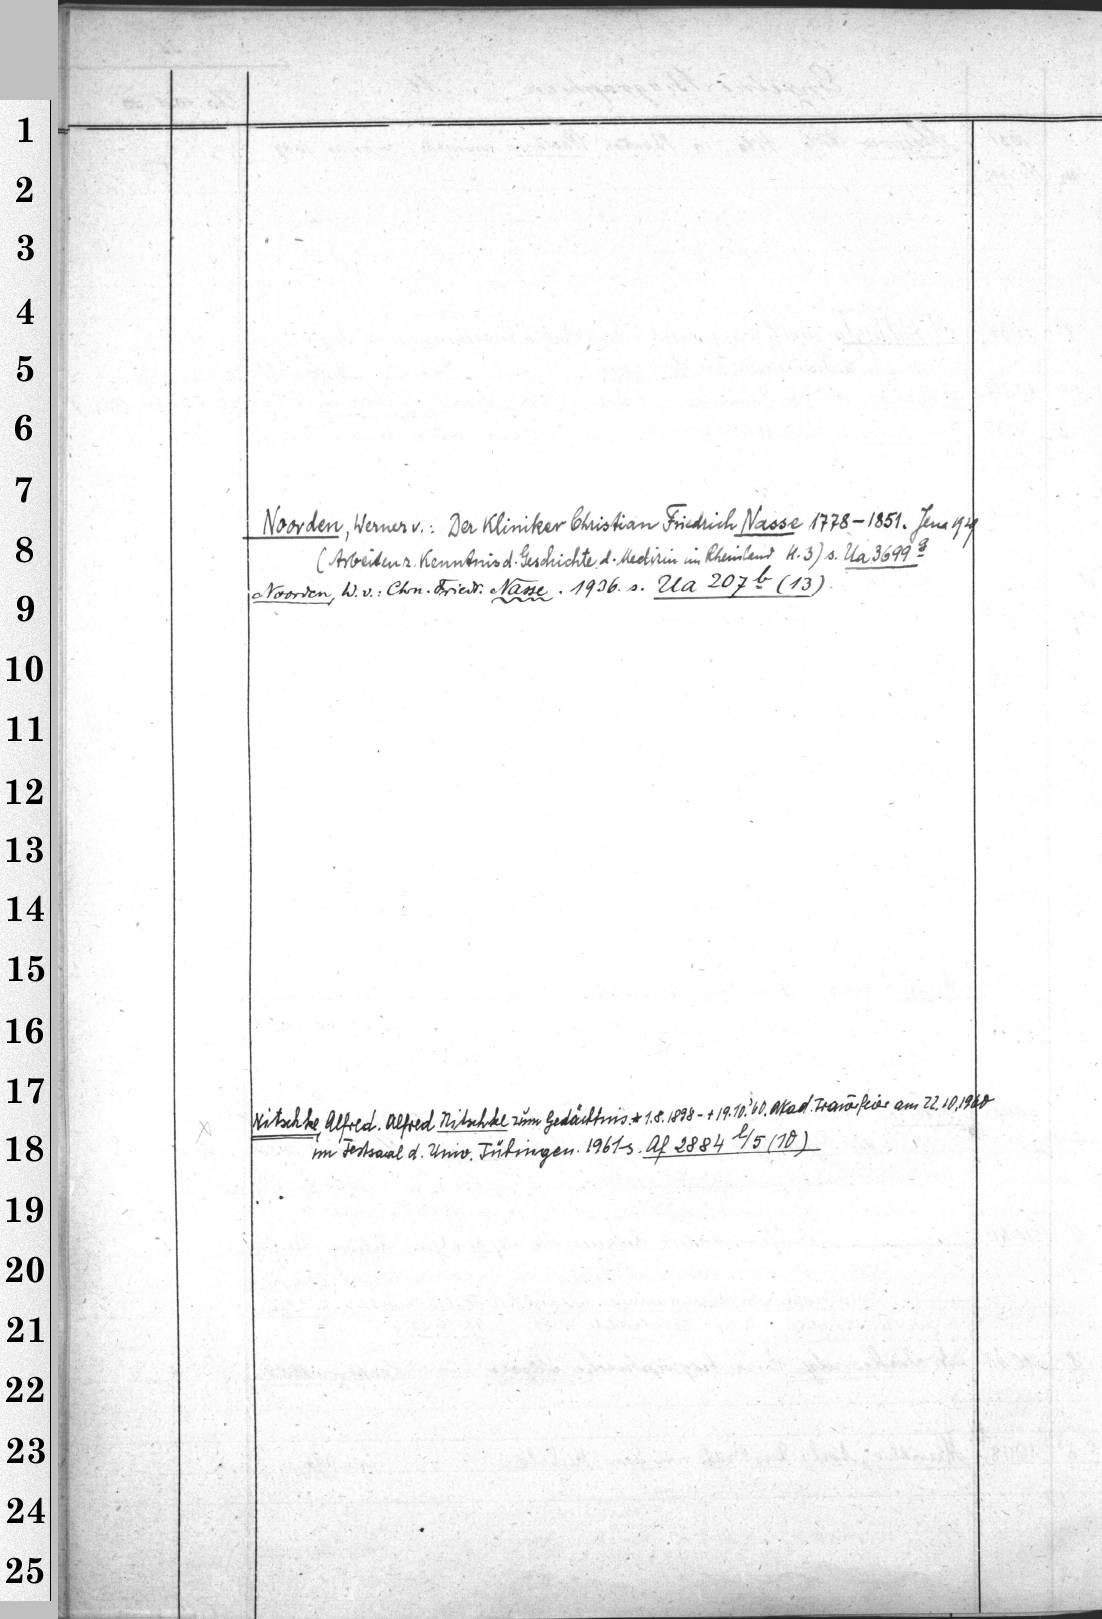 1
2
3
4
5
6
7
Noorden, Werner v.: Der Kliniker Christian Friedrich Nasse 1778-1851. Jena 1929
8
(Arbeiten z. Kenntnis d. Geschichte d. Medizin im Rheinland H. 3) s. Ua 3699 a
9
Noorden, W. v.: Chn. Friedr. Nasse. 1936. s. Ua 207 b (13).
10
11
12
13
14
15
16
17
Nitschke, Alfred. Alfred Nitschke zum Gedächtnis. * 1.8.1898 - + 19.10.'60. Akad. Trauerfeier am 22.10.1960
18
im Festsaal d. Univ. Tübingen. 1961 s. Af 2884 /5 (10)
19
20
21
22
23
24
25